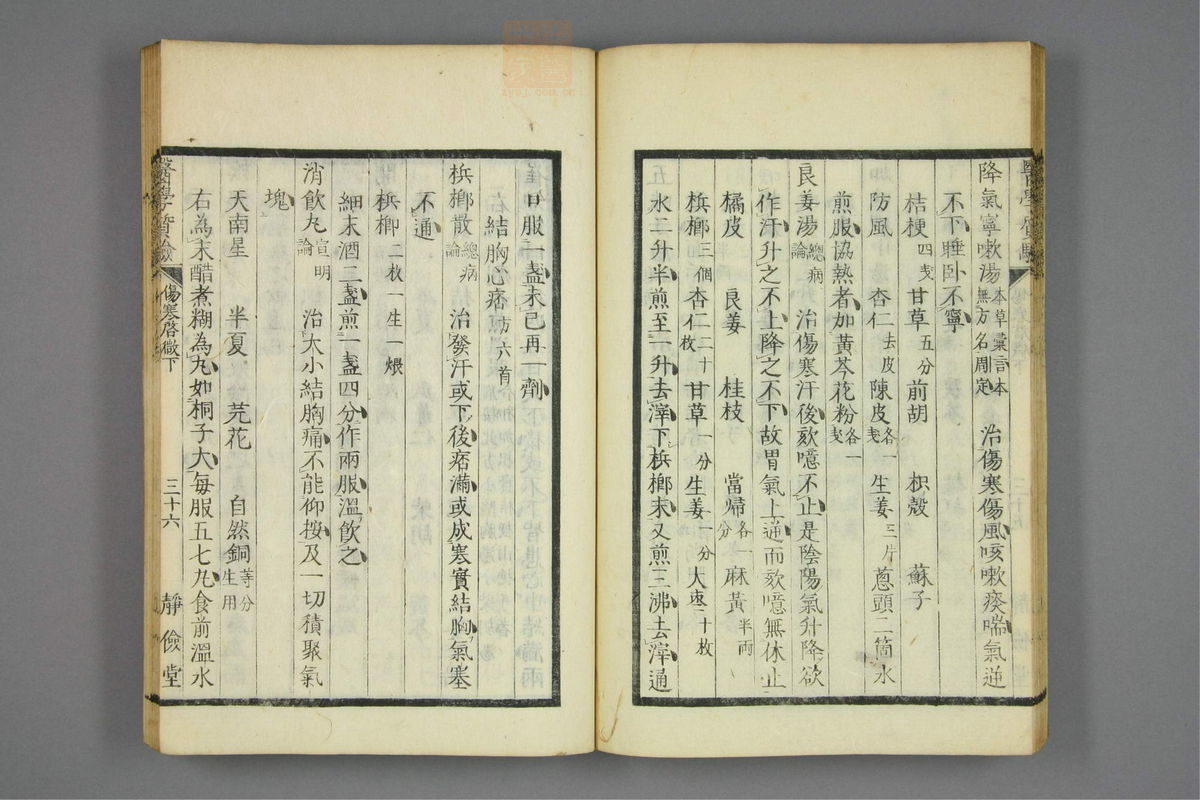 降氣寧嗽湯 本草彙言本無方名周定 治傷寒傷風咳嗽痰喘氣逆
不下睡臥不寧
桔梗 四戔 甘草 五分 前胡 枳殼 蘇子
防風 杏仁 去皮 陳皮 各一戔 生姜 三片 葱頭二箇水
煎服協熱者加黃芩花粉 各一戔
良姜湯 總病論 治傷寒汗後欬噫不止是陰陽氣升降欲
作汗升之不上降之不下故胃氣上逋而欬噫無休止
橘皮 良姜 桂枝 當歸 各一分 麻黃 半兩
梹榔 三個 杏仁 二十枚 甘草 一分 生姜 一分 大枣 二十枚
水二升半煎至一升去滓下梹榔末又煎三沸去滓通
口服一盞未已再一劑
結胸心痞 方六首
梹榔散 總病論 治發汗或下後痞滿或成寒實結胸氣塞
不通
梹榔 二枚一生一煨
細末酒二盞煎一盞四分作兩服溫飲之
消飲丸 宣明論 治大小結胸痛不能仰按及一切積聚氣
塊
天南星 半夏 芫花 自然銅 等分生用
右為末醋煮糊為丸如桐子大每服五七丸食前溫水
醫學質驗 傷寒啓微下 三十六 靜儉堂
zysj.com.cn